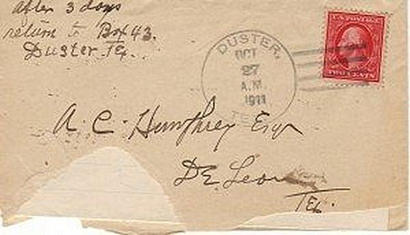 after 3 days
return to Box 43.
Duster Tex.
DUSTER,
OCT
27
A.M.
1911
TEX
U.S. POSTAGE
TWO CENTS
A. C. Humphrey Esqr
De Leon
Tex.